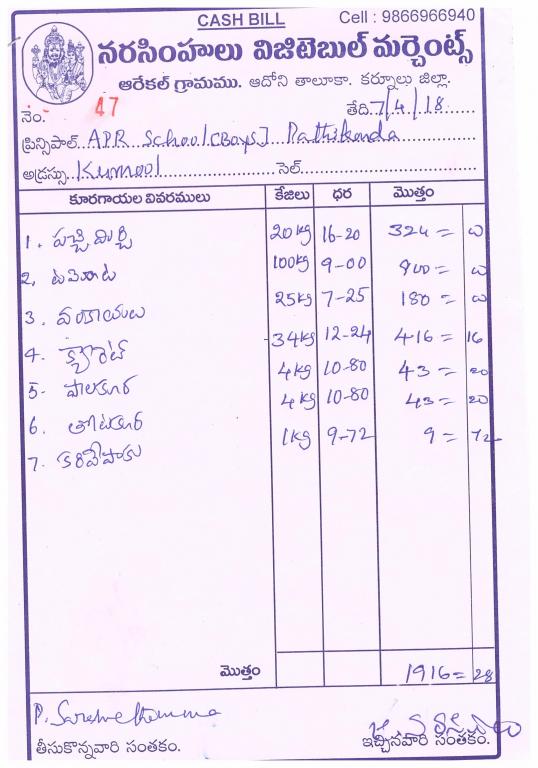 CASH BILL Cell : 9866966940
నరసింహులు విజిటెబుల్ మర్చెంట్స్
ఆరేకల్ గ్రామము. ఆదోని తాలూకా. కర్నూలు జిల్లా.
నెం. 47 తేది. 7/4/18
ప్రిన్సిపాల్. APR School (Boys) Pathikonda
అడ్రస్సు. Kurnool సెల్.
కూరగాయల వివరములు కేజిలు ధర మొత్తం
1. పచ్చిమిర్చి 20kg 16-20 324=
2. టమోట 100kg 9-00 900=
3. వంకాయలు 25kg 7-25 180=
4. క్యారెట్ 34kg 12-24 416=16
5. పాలకూర 4kg 10-80 43=20
6. తోటకూర 4kg 10-80 43=20
7. కరివేపాకు 1kg 9-72 9=72
మొత్తం 1916=28
తీసుకొన్నవారి సంతకం. ఇచ్చినవారి సంతకం.